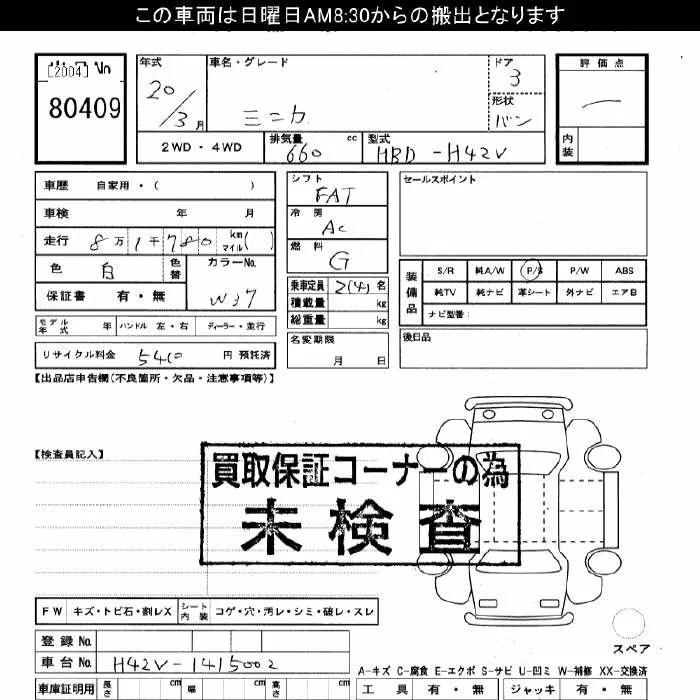 この車両は日曜日AM8:30からの搬出となります
[2004] No
80409
年式 20/3月
車名・グレード ミニカ
ドア 3
形状 バン
2WD・4WD
排気量 660 cc
型式 HBD-H42V
評価点
内装
車歴 自家用・( )
車検 年 月
走行 8万1千780 km マイル( )
色 白 色替
カラーNo. W37
保証書 有・無
モデル年式 年 ハンドル 左・右 ディーラー・並行
リサイクル料金 5410 円 預託済
シフト FAT
冷房 AC
燃料 G
乗車定員 2(4)名
積載量 kg
総重量 kg
名変期限 月 日
セールスポイント
装備品
S/R 純A/W P/S P/W ABS
純TV 純ナビ 革シート 外ナビ エアB
ナビ型番:
後日品
【出品店申告欄(不良箇所・欠品・注意事項等)】
【検査員記入】
買取保証コーナーの為
未検査
FW キズ・トビ石・割レX シート内装 コゲ・穴・汚レ・シミ・破レ・スレ
スペア
登録No.
車台No. H42V-1415002
A-キズ C-腐食 E-エクボ S-サビ U-凹ミ W-補修 XX-交換済
車庫証明用 長さ cm 幅 cm 高さ cm
工具 有・無 ジャッキ 有・無